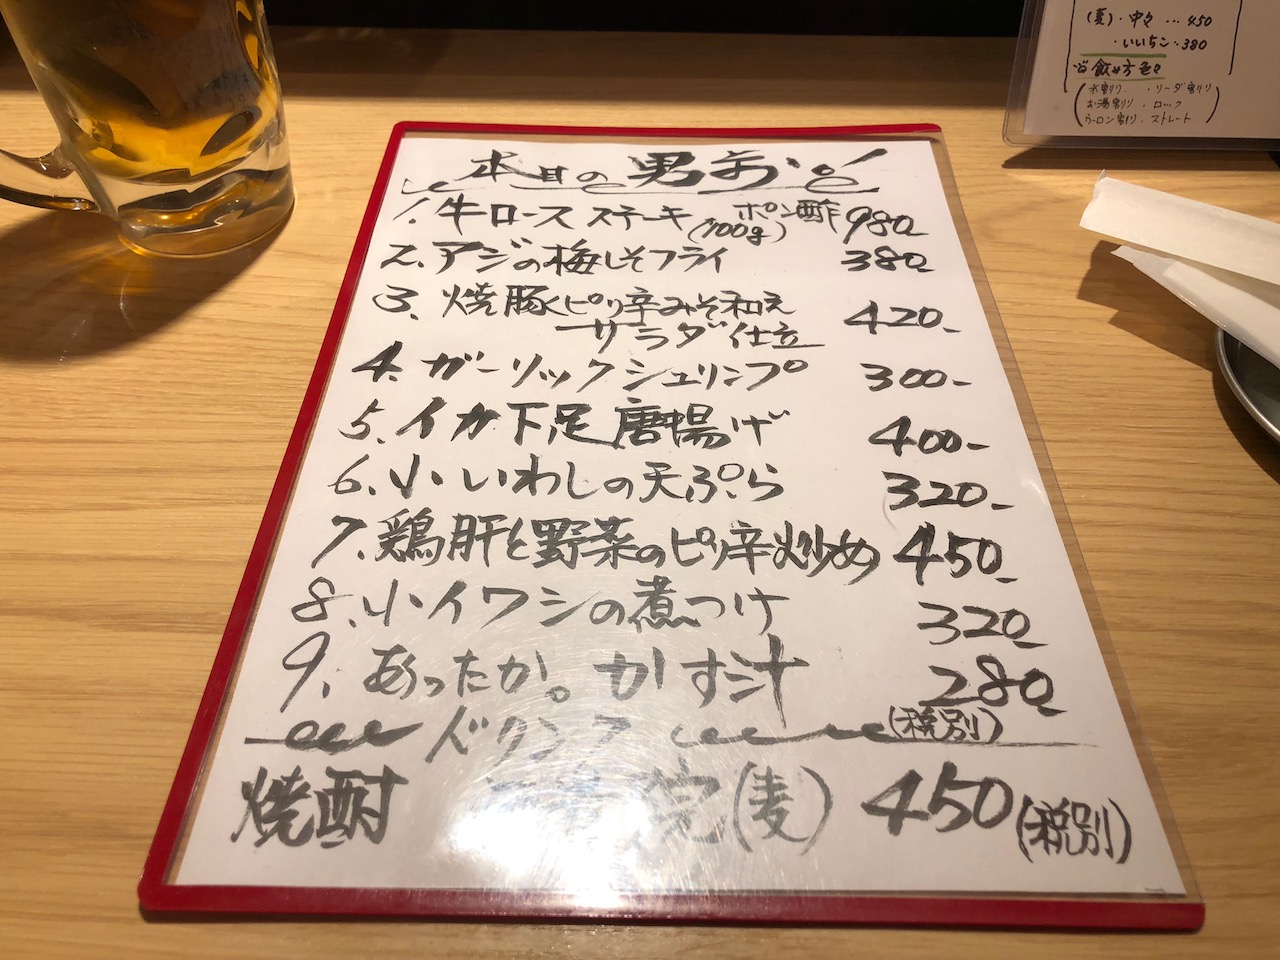 (麦)・中々…450
・いいちこ…380
飲み方色々
水割り・ソーダ割り
お湯割り・ロック
ウーロン割り・ストレート
本日の男
1.牛ロースステーキ(100g)ポン酢 980-
2.アジの梅しそフライ 380-
3.焼豚ピリ辛みそ和え
サラダ仕立 420-
4.ガーリックシュリンプ 300-
5.イカ下足唐揚げ 400-
6.小いわしの天ぷら 320-
7.鶏肝と野菜のピリ辛炒め 450-
8.小イワシの煮つけ 320-
9.あったか。かす汁 280-
ドリンク (税別)
焼酎 (麦) 450(税別)